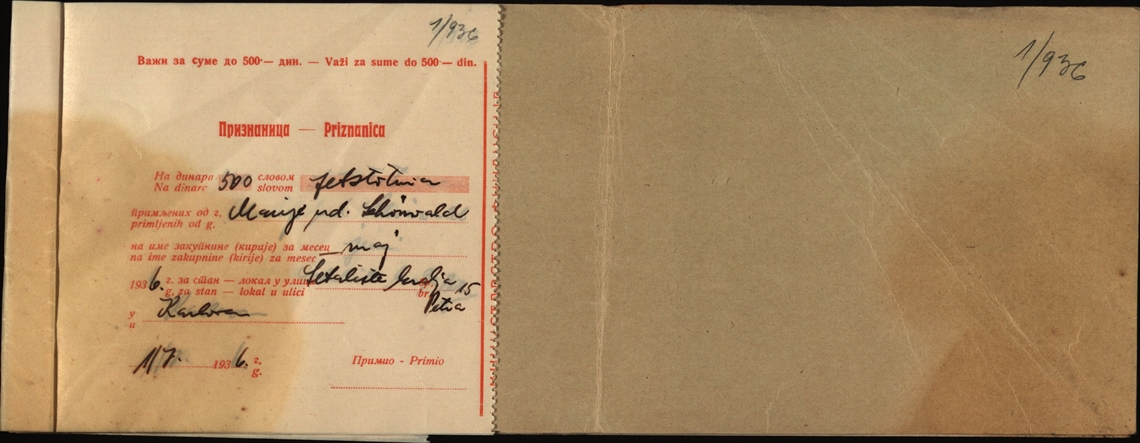 1/936
Важи за суме до 500·— дин. — Važi za sume do 500·— din.
Признаница — Priznanica
На динара 500 словом petstotina
Na dinare slovom
примљених од г. Marije ud. Schönwald
primljenih od g.
на име закупнине (кирије) за месец maj
na ime zakupnine (kirije) za mesec
1936. г. за стан — локал у улици Šetalište kralja 15
g. za stan — lokal u ulici br. Petra
у Karlovcu
u
1/7. 1936. г.
g.
Примио - Primio
1/936